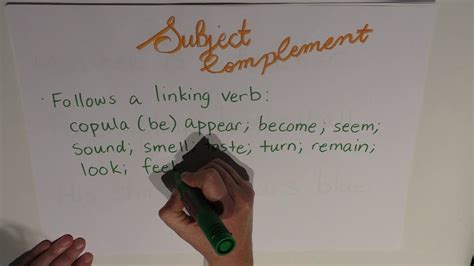 Subject
Complement
· Follows a linking verb:
copula (be) appear; become; seem;
sound; smell; taste; turn; remain;
look; feel